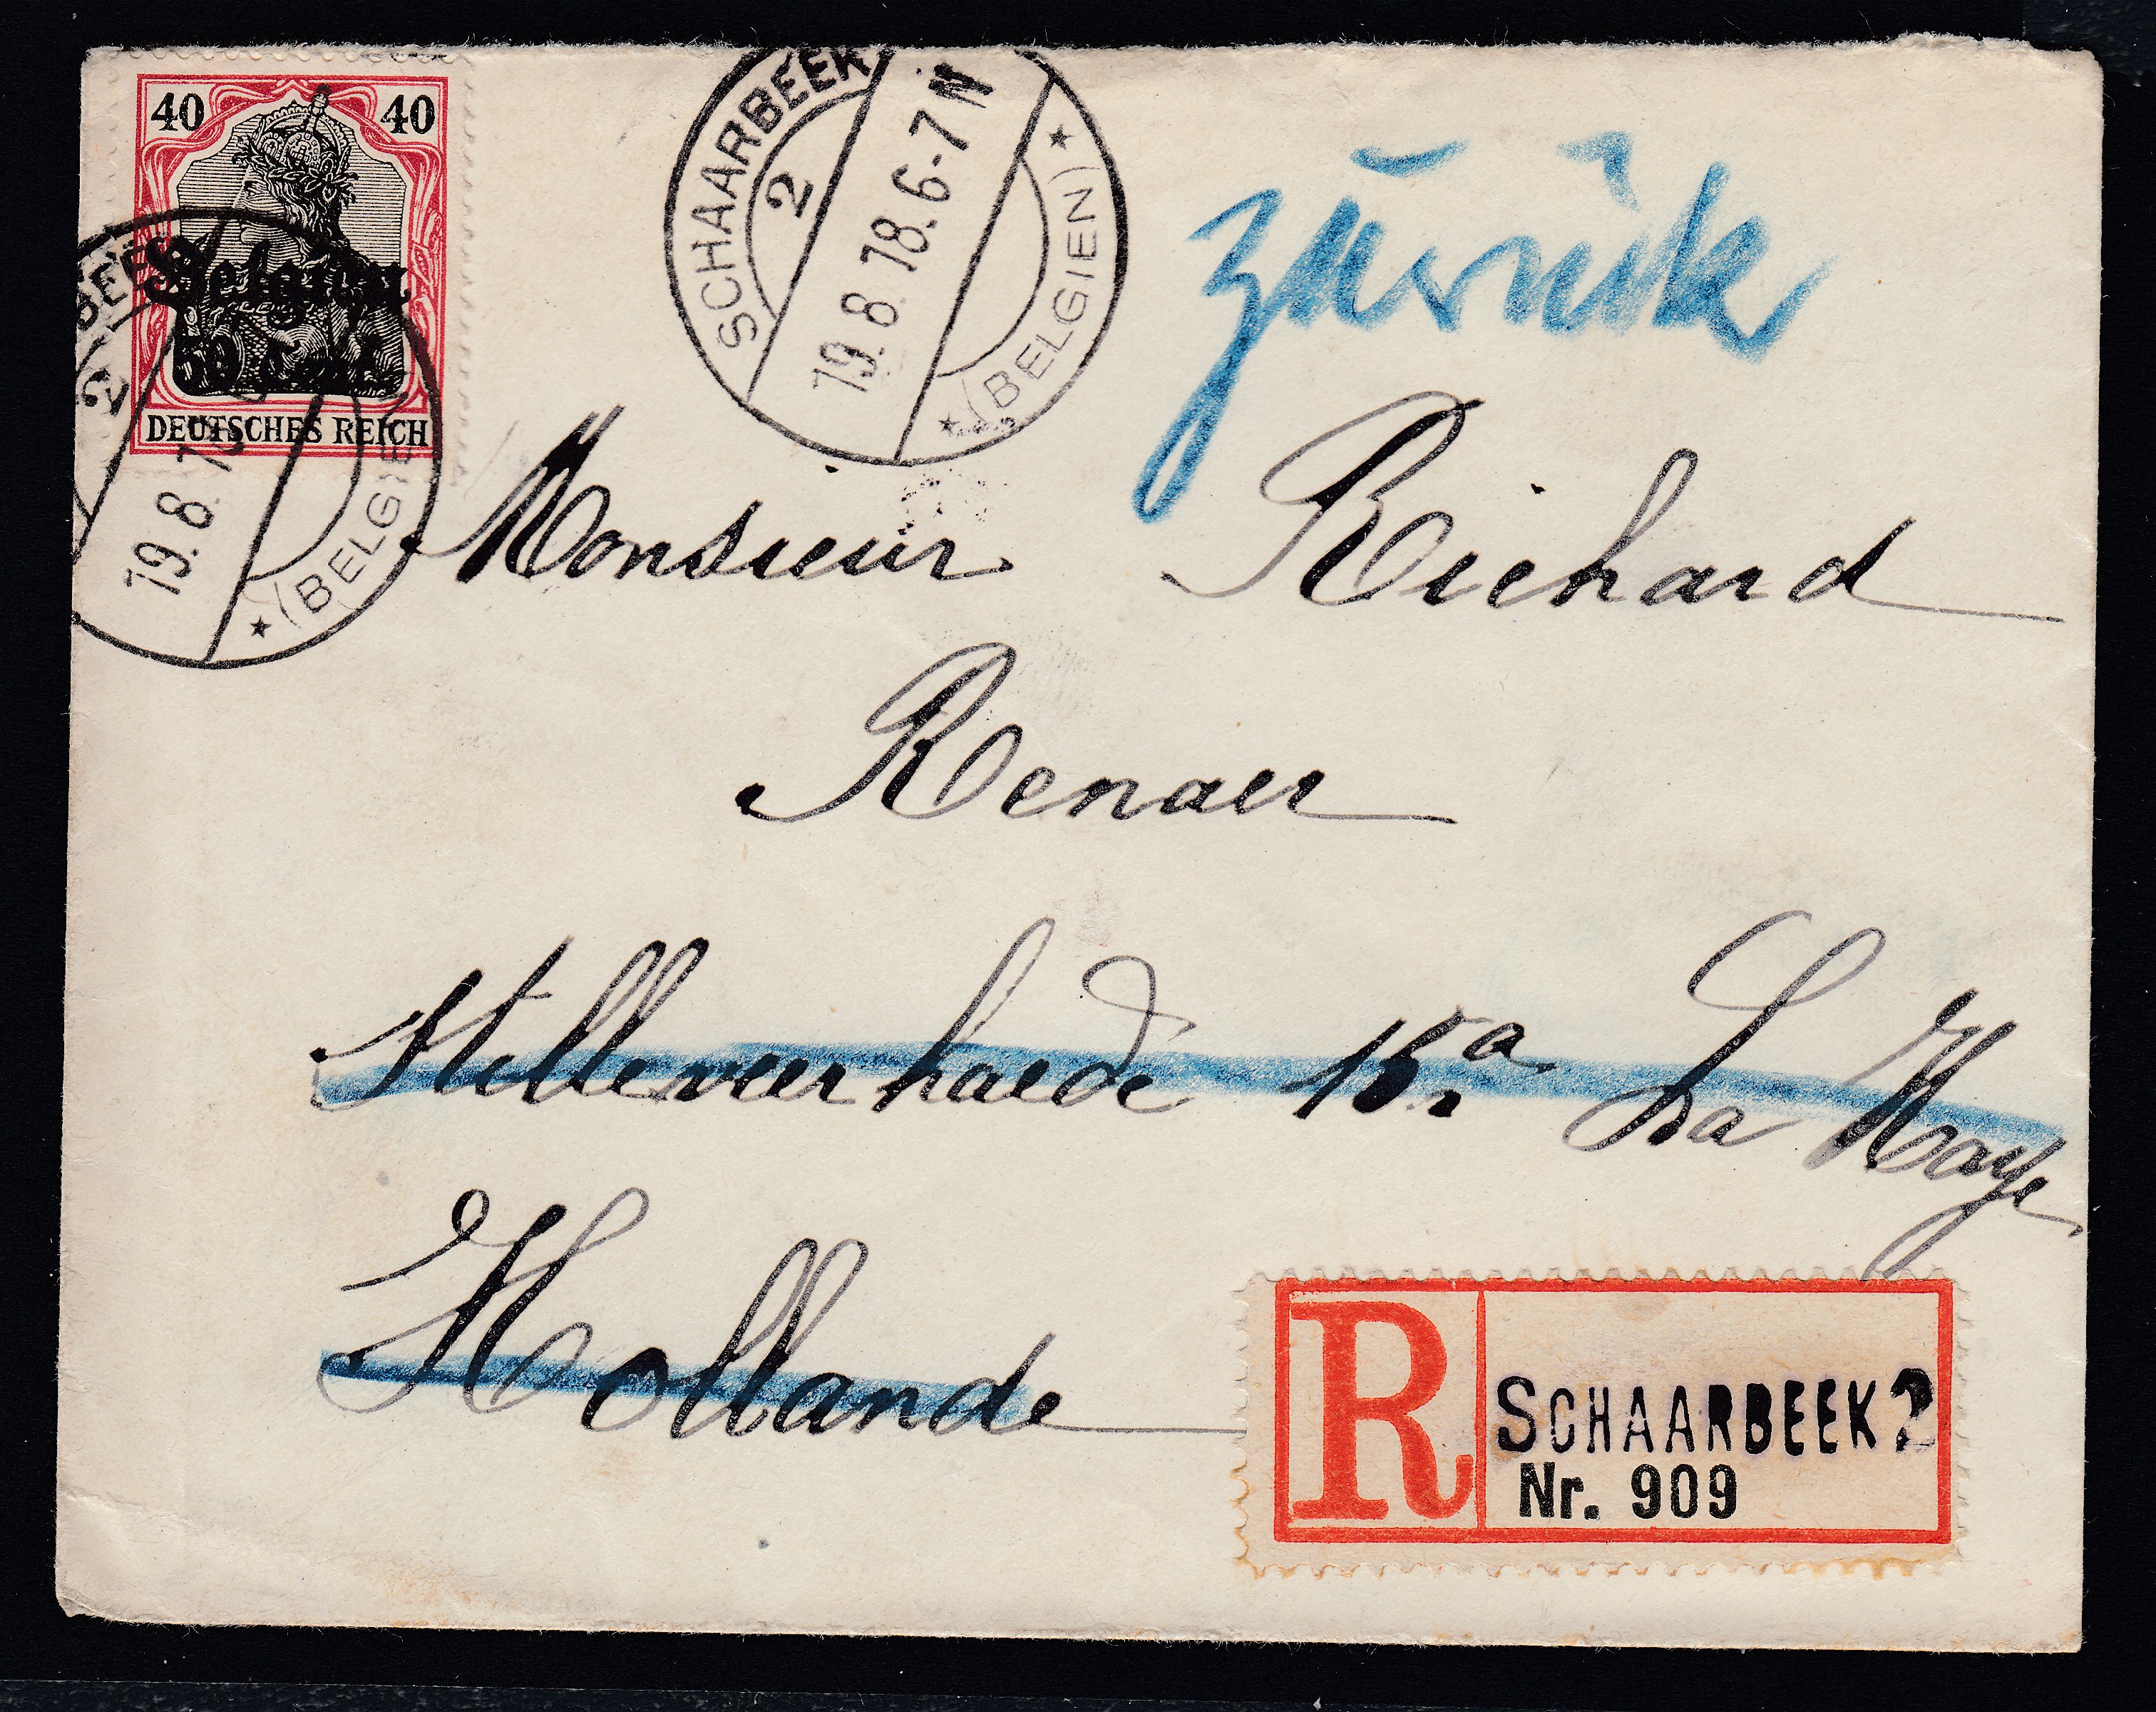 40 40
Belgien
50 Cent.
DEUTSCHES REICH
BEEK
2
19.8.18
(BELGIEN)
SCHAARBEEK
2
19.8.18.6-7N
(BELGIEN)
zurück
Monsieur Richard
Renaer
15.a La Haye
Hollande
R
SCHAARBEEK 2
Nr. 909